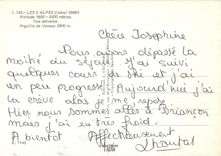 L. 745 - LES 2 ALPES (Isère) 38860
Altitude 1650 - 3600 mètres
Vue aérienne
Aiguille de Venosc 2800 m.
Chère Josephine
Nous avons dépassé la
moitié du séjour. J'ai suivi
quelques cours de ski et j'ai
un peu progressé. Aujourd'hui j'ai
la crève alors je me repose.
Hier nous sommes allés à Briançon
mais j'ai eu très froid.
A bientôt Affectueusement
Chantal